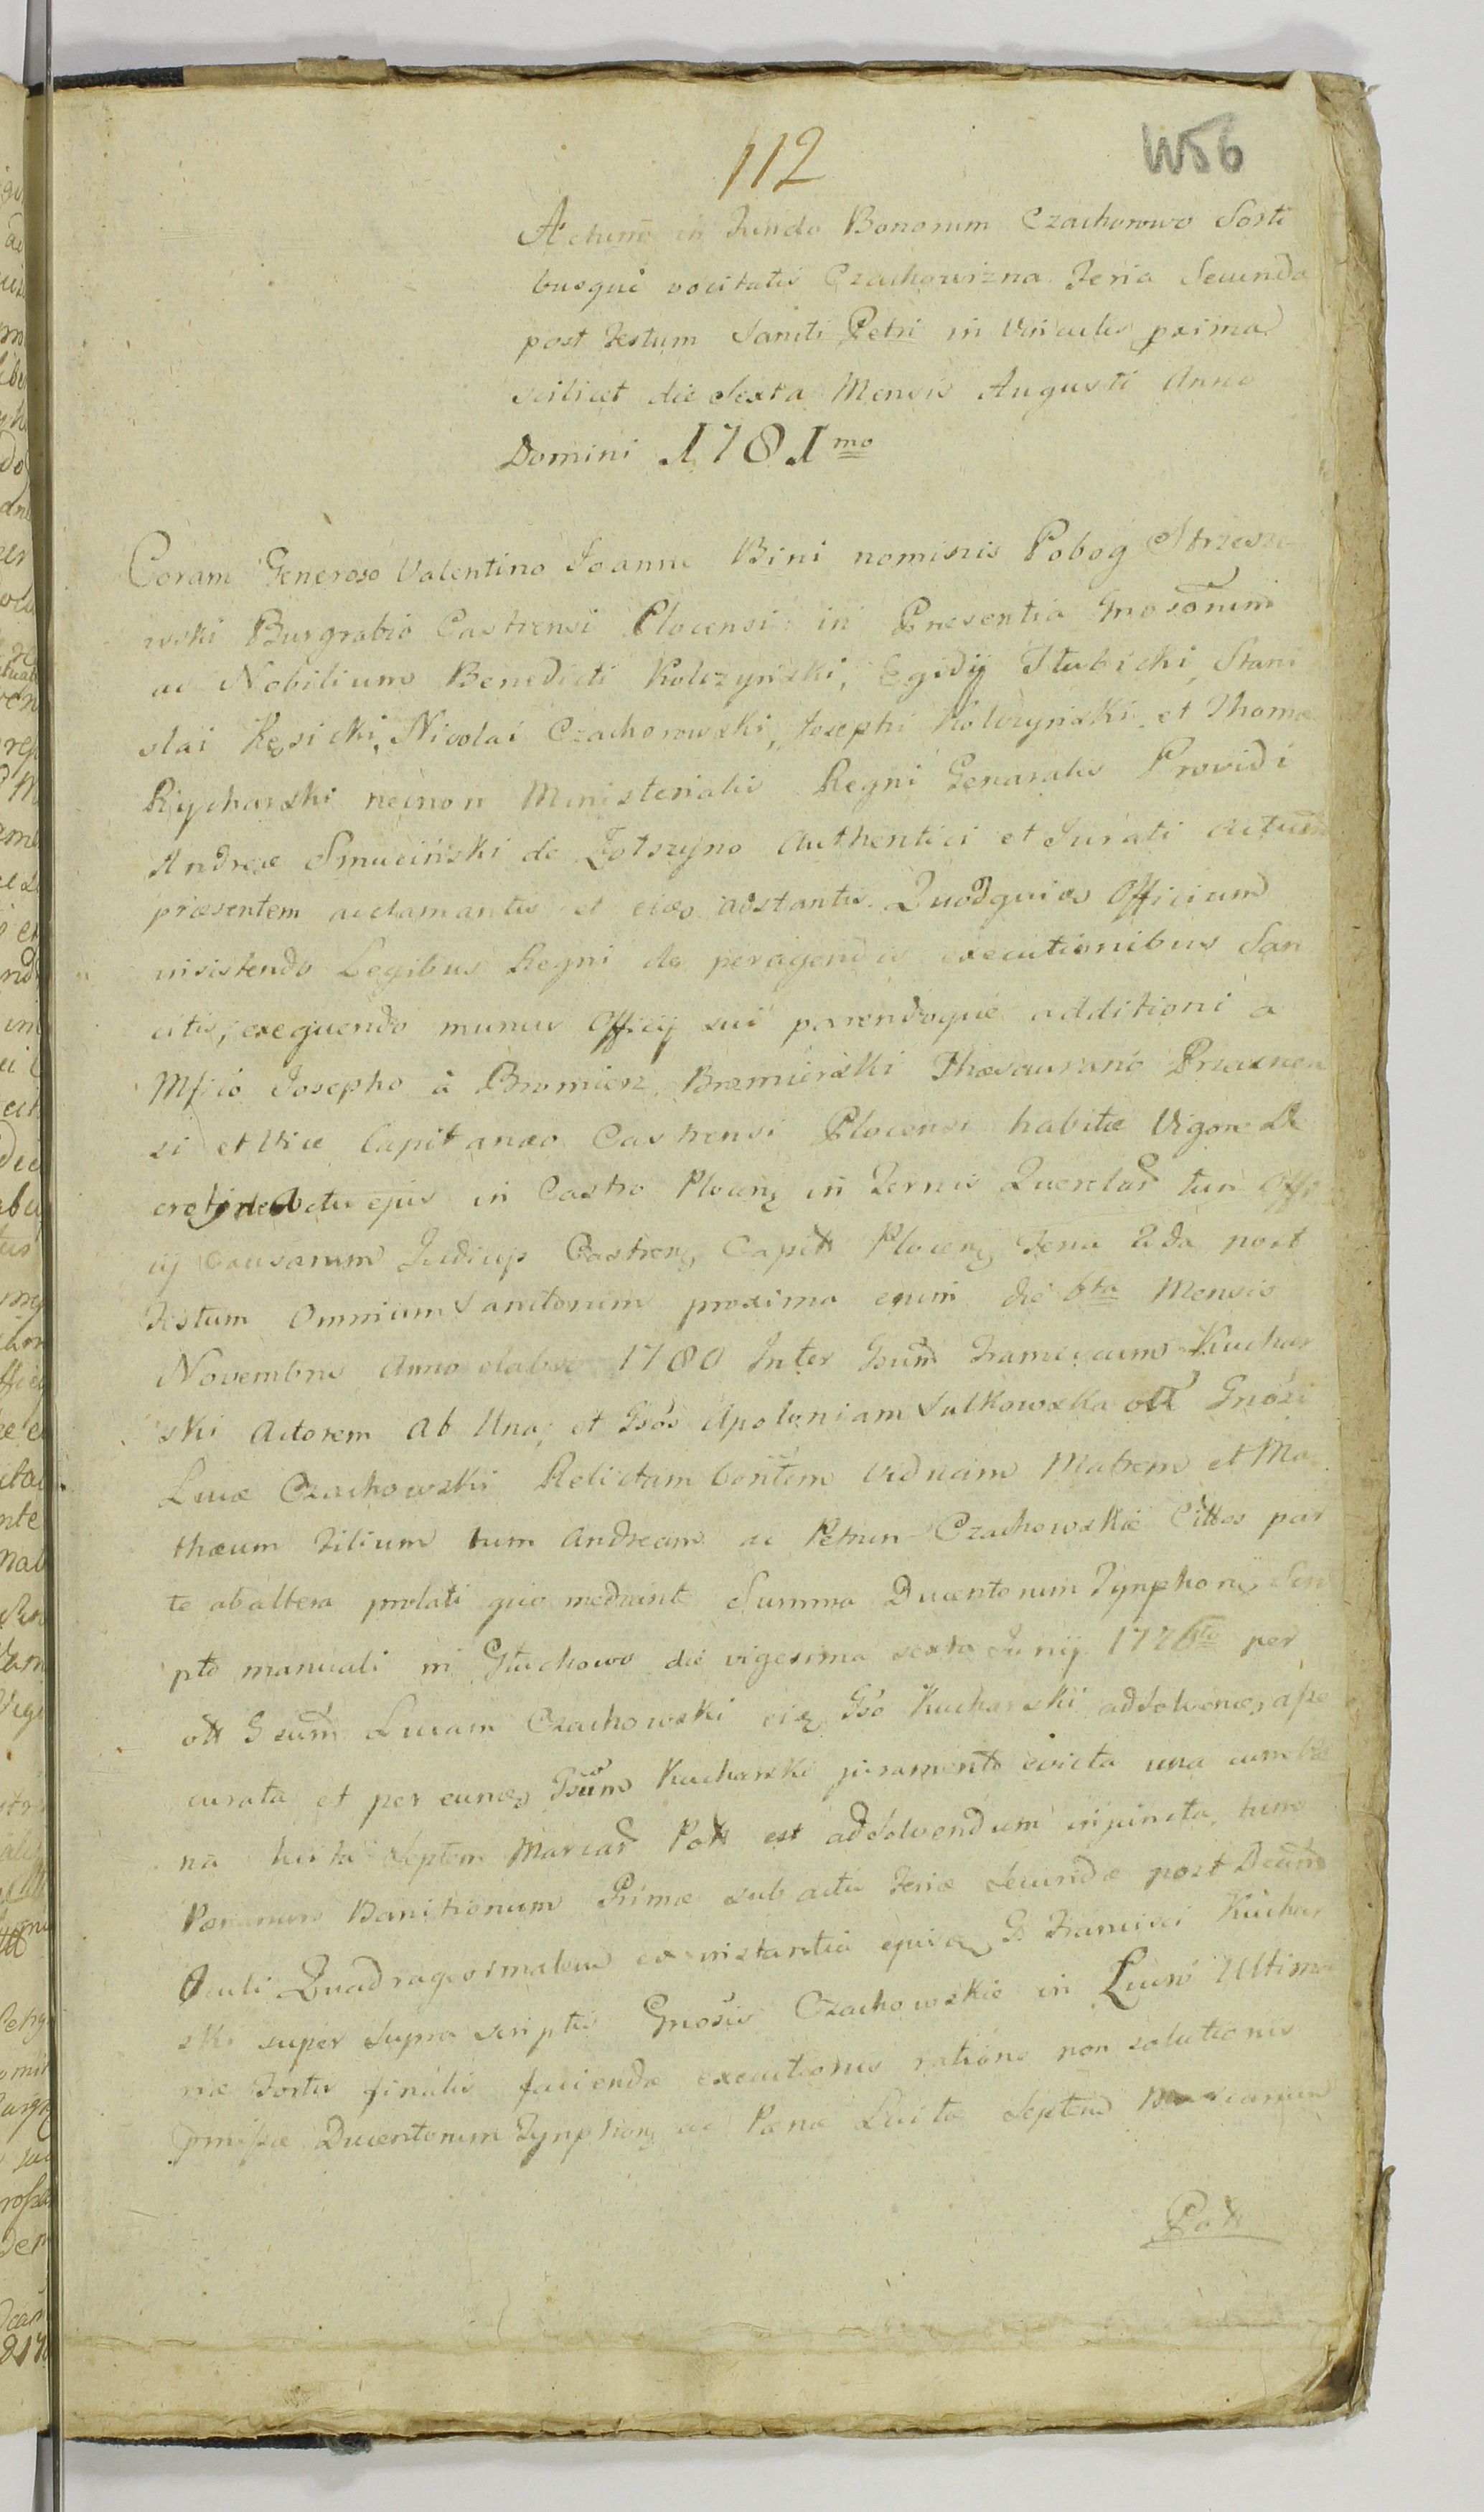 112
W56
Actum in Fundo Bonorum Czachorowo Sorti
busque vocitatis Czachowizna Feria Secunda
post Festum Sancti Petri in Vinculis proxima
scilicet die Sexta Mensis Augusti Anno
Domini 1781mo
Coram Generoso Valentino Joanne Bini nominis Pobog Strzesze
wski Burgrabio Castrensi Plocensi in Presentia Gnosorum
ac Nobilium Benedicti Kolczynski, Egidij Słubicki, Stani
slai Kęsicki, Nicolai Czachorowski, Josephi Kolczynski et Thomæ
Rycharski necnon Ministerialis Regni Genaralis Providi
Andreæ Smuciński de authentici et Jurati actum
præsentem acclamantis et eidem adstantis. Quodquidem Officium
insistendo Legibus Regni de peragendis executionibus San
citis, exequendo munus Officij sui parendoque additioni a
Mfico Josepho à Bromierz Bromierski Thesaurario Prasnen
si et Vice Capitaneo Castrensi Plocensi habitæ Vigore De
creti in Actu ejus in Castro Plocen in Termis Querelar tum Offi
cij Causarum Judicijs Castren Capit Plocen Feria 2da post
Festum Omnium Sanctorum proxima enim die 6ta Mensis
Novembris Anno elabso 1780 Inter Gsum Franciscum Kuchar
ski Actorem ab Una, et Gsos Apoloniam Sulkowska olt Gnosi
Lucæ Czachowski Relictam Viduam Matrem et Ma
thæum Filium tum Andream ac Petrum Czachowskie Cittos par
te ab altera prolati quo mediante Summa Ducentorum Tynphor Scri
pto manuali in Głuchowo die vigesima sexta Junij 1776to per
olt Gsum Lucam Czachowski Gso Kucharski adsolven aſse
curata et per eunm Gsum Kucharski juramento evicta una cum
na luita septem Marcar Polt est adsolvendum injuncta, tum
Pænarum Banitionum Primæ sub actu Feriæ Secundæ post Dcam
Oculi Quadragesimalem ex instantia G Francisci Kuchar
ski super supra scriptis Gnosis Czachowskie in Lucro Ultima
riæ Fortis finalis faciendæ executionis ratione non solutionis
pmiſsæ Ducentorum Tynphor ac Pænæ Luitæ Septem Marcarum
Polt